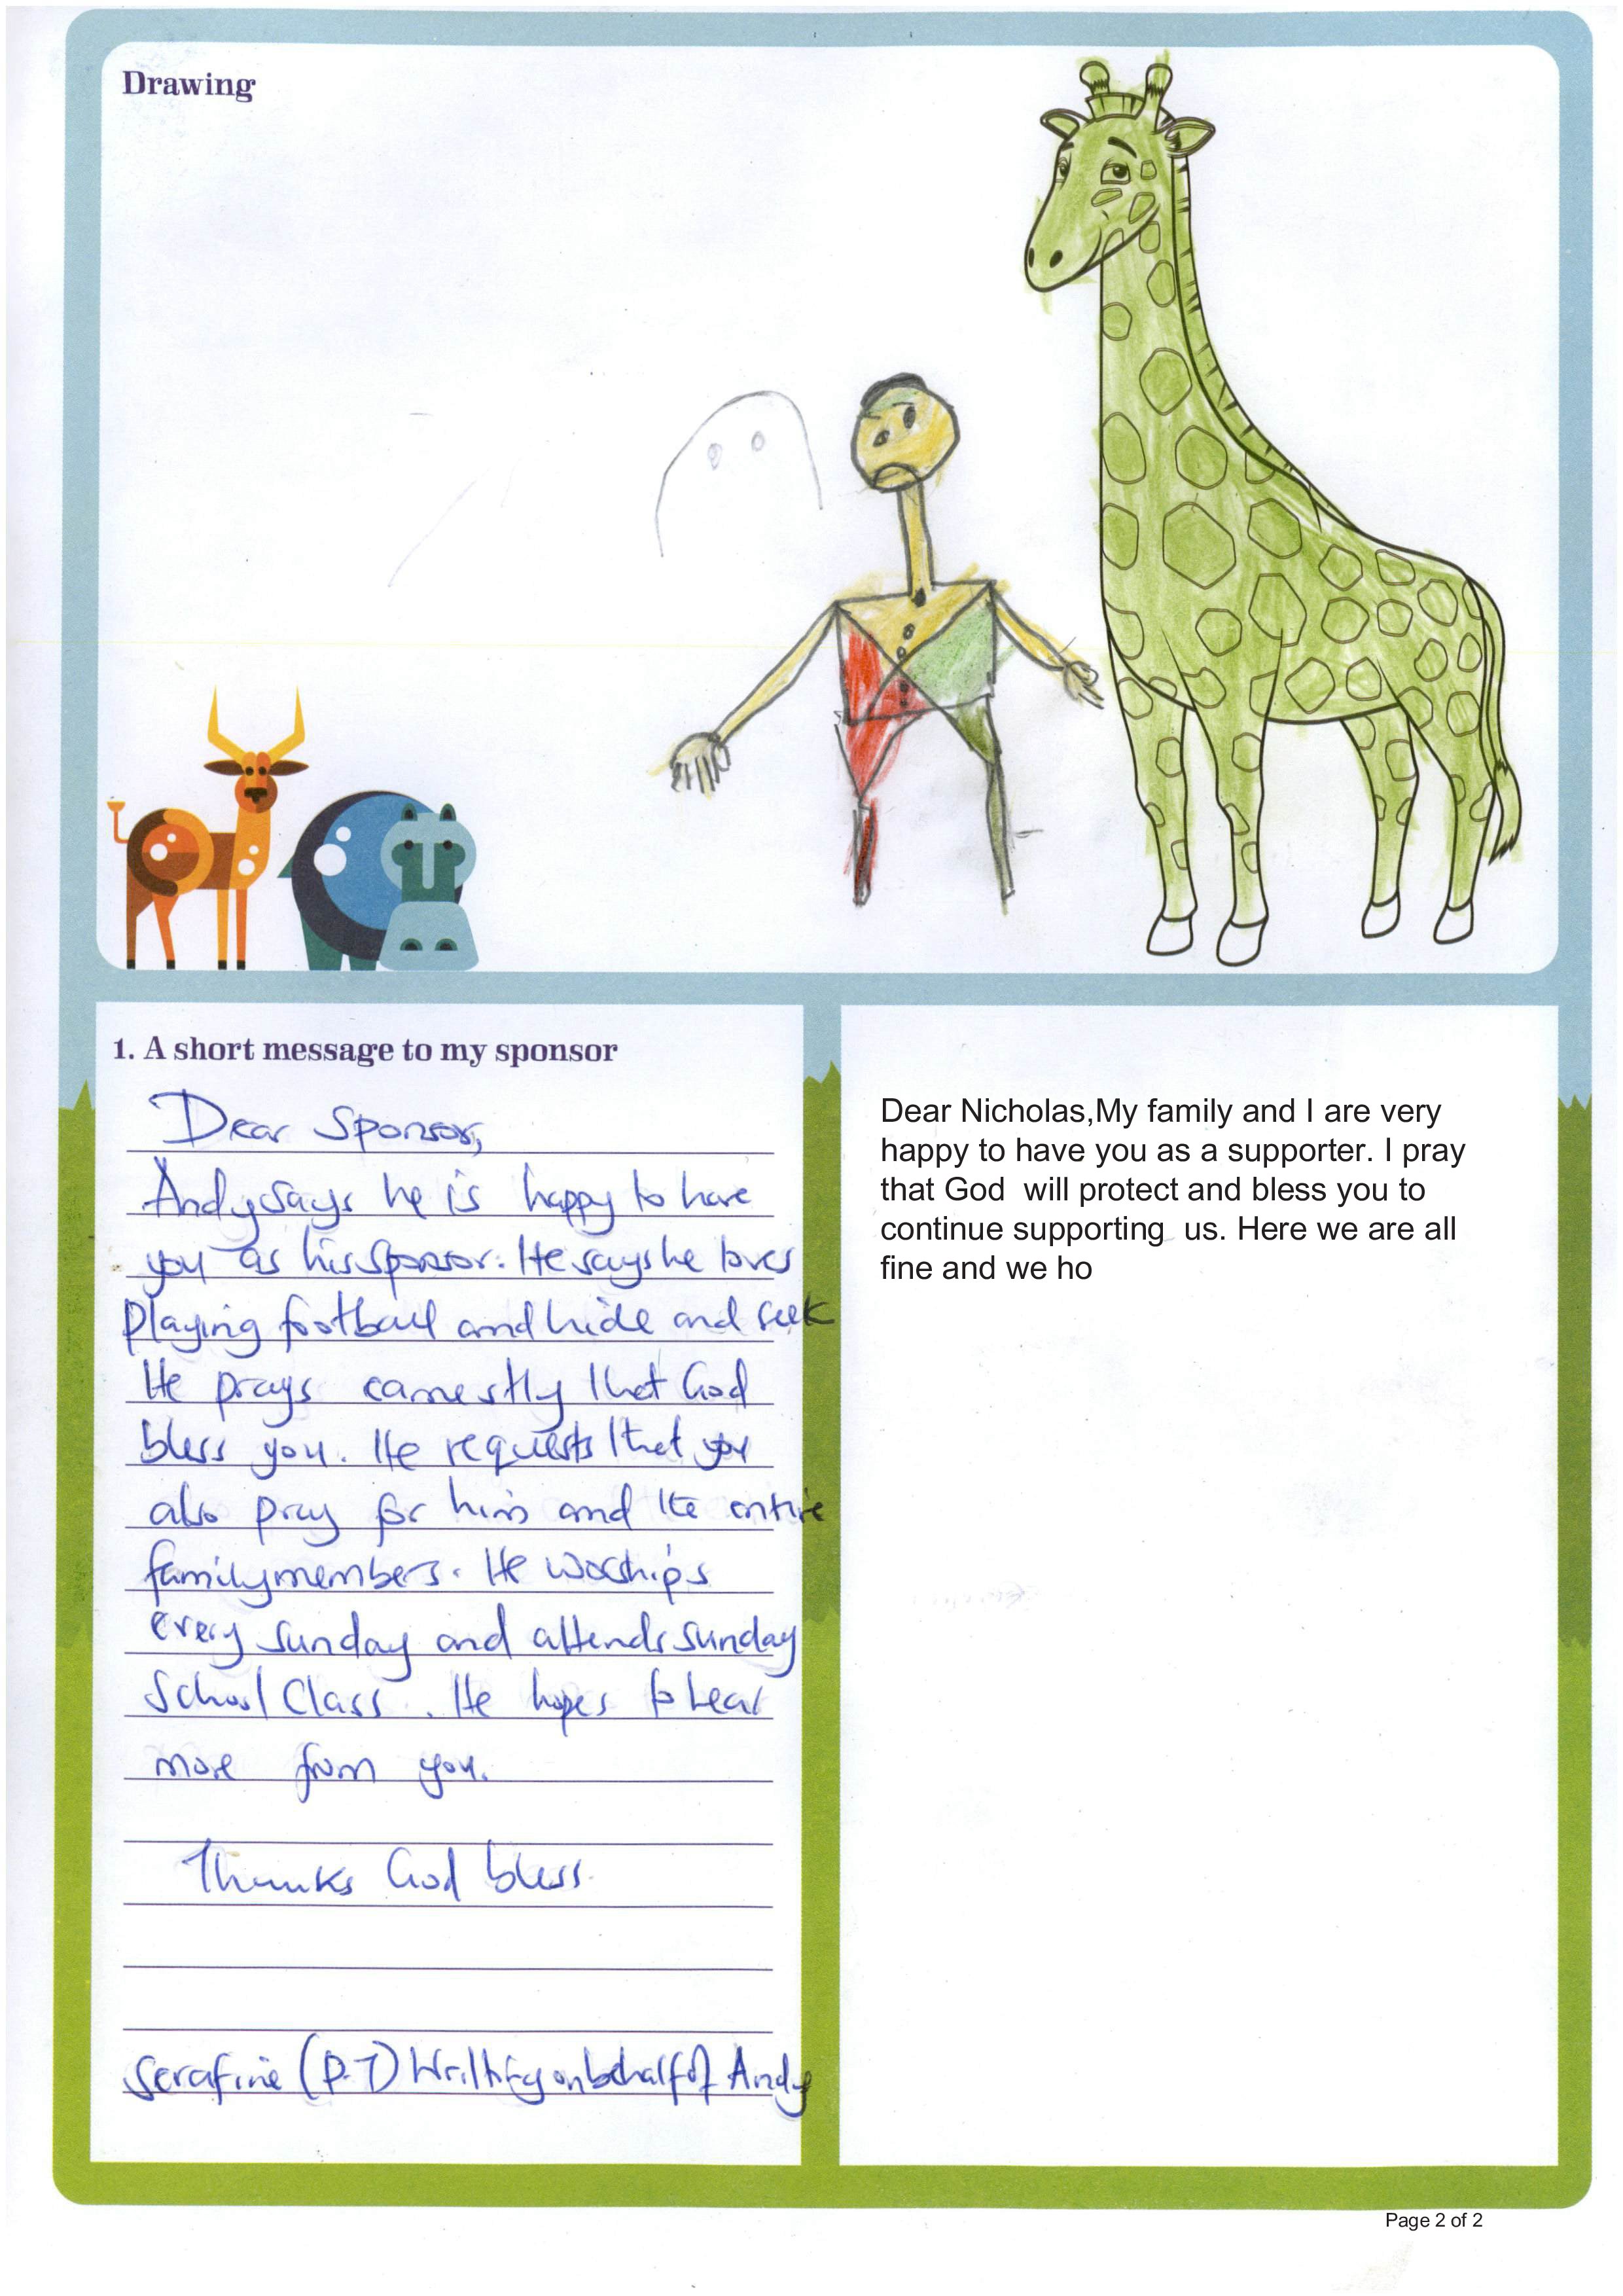 Drawing
1. A short message to my sponsor
Dear Sponsor,
Andy says he is happy to have
you as his sponsor. He says he loves
playing football and hide and seek
He prays earnestly that God
bless you. He requests that you
also pray for him and the entire
family members. He worships
every sunday and attends sunday
School Class. He hopes to hear
more from you.
Thanks God bless.
Serafine (P.T) on behalf of Andy
Dear Nicholas,My family and I are very
happy to have you as a supporter. I pray
that God will protect and bless you to
continue supporting us. Here we are all
fine and we ho
Page 2 of 2